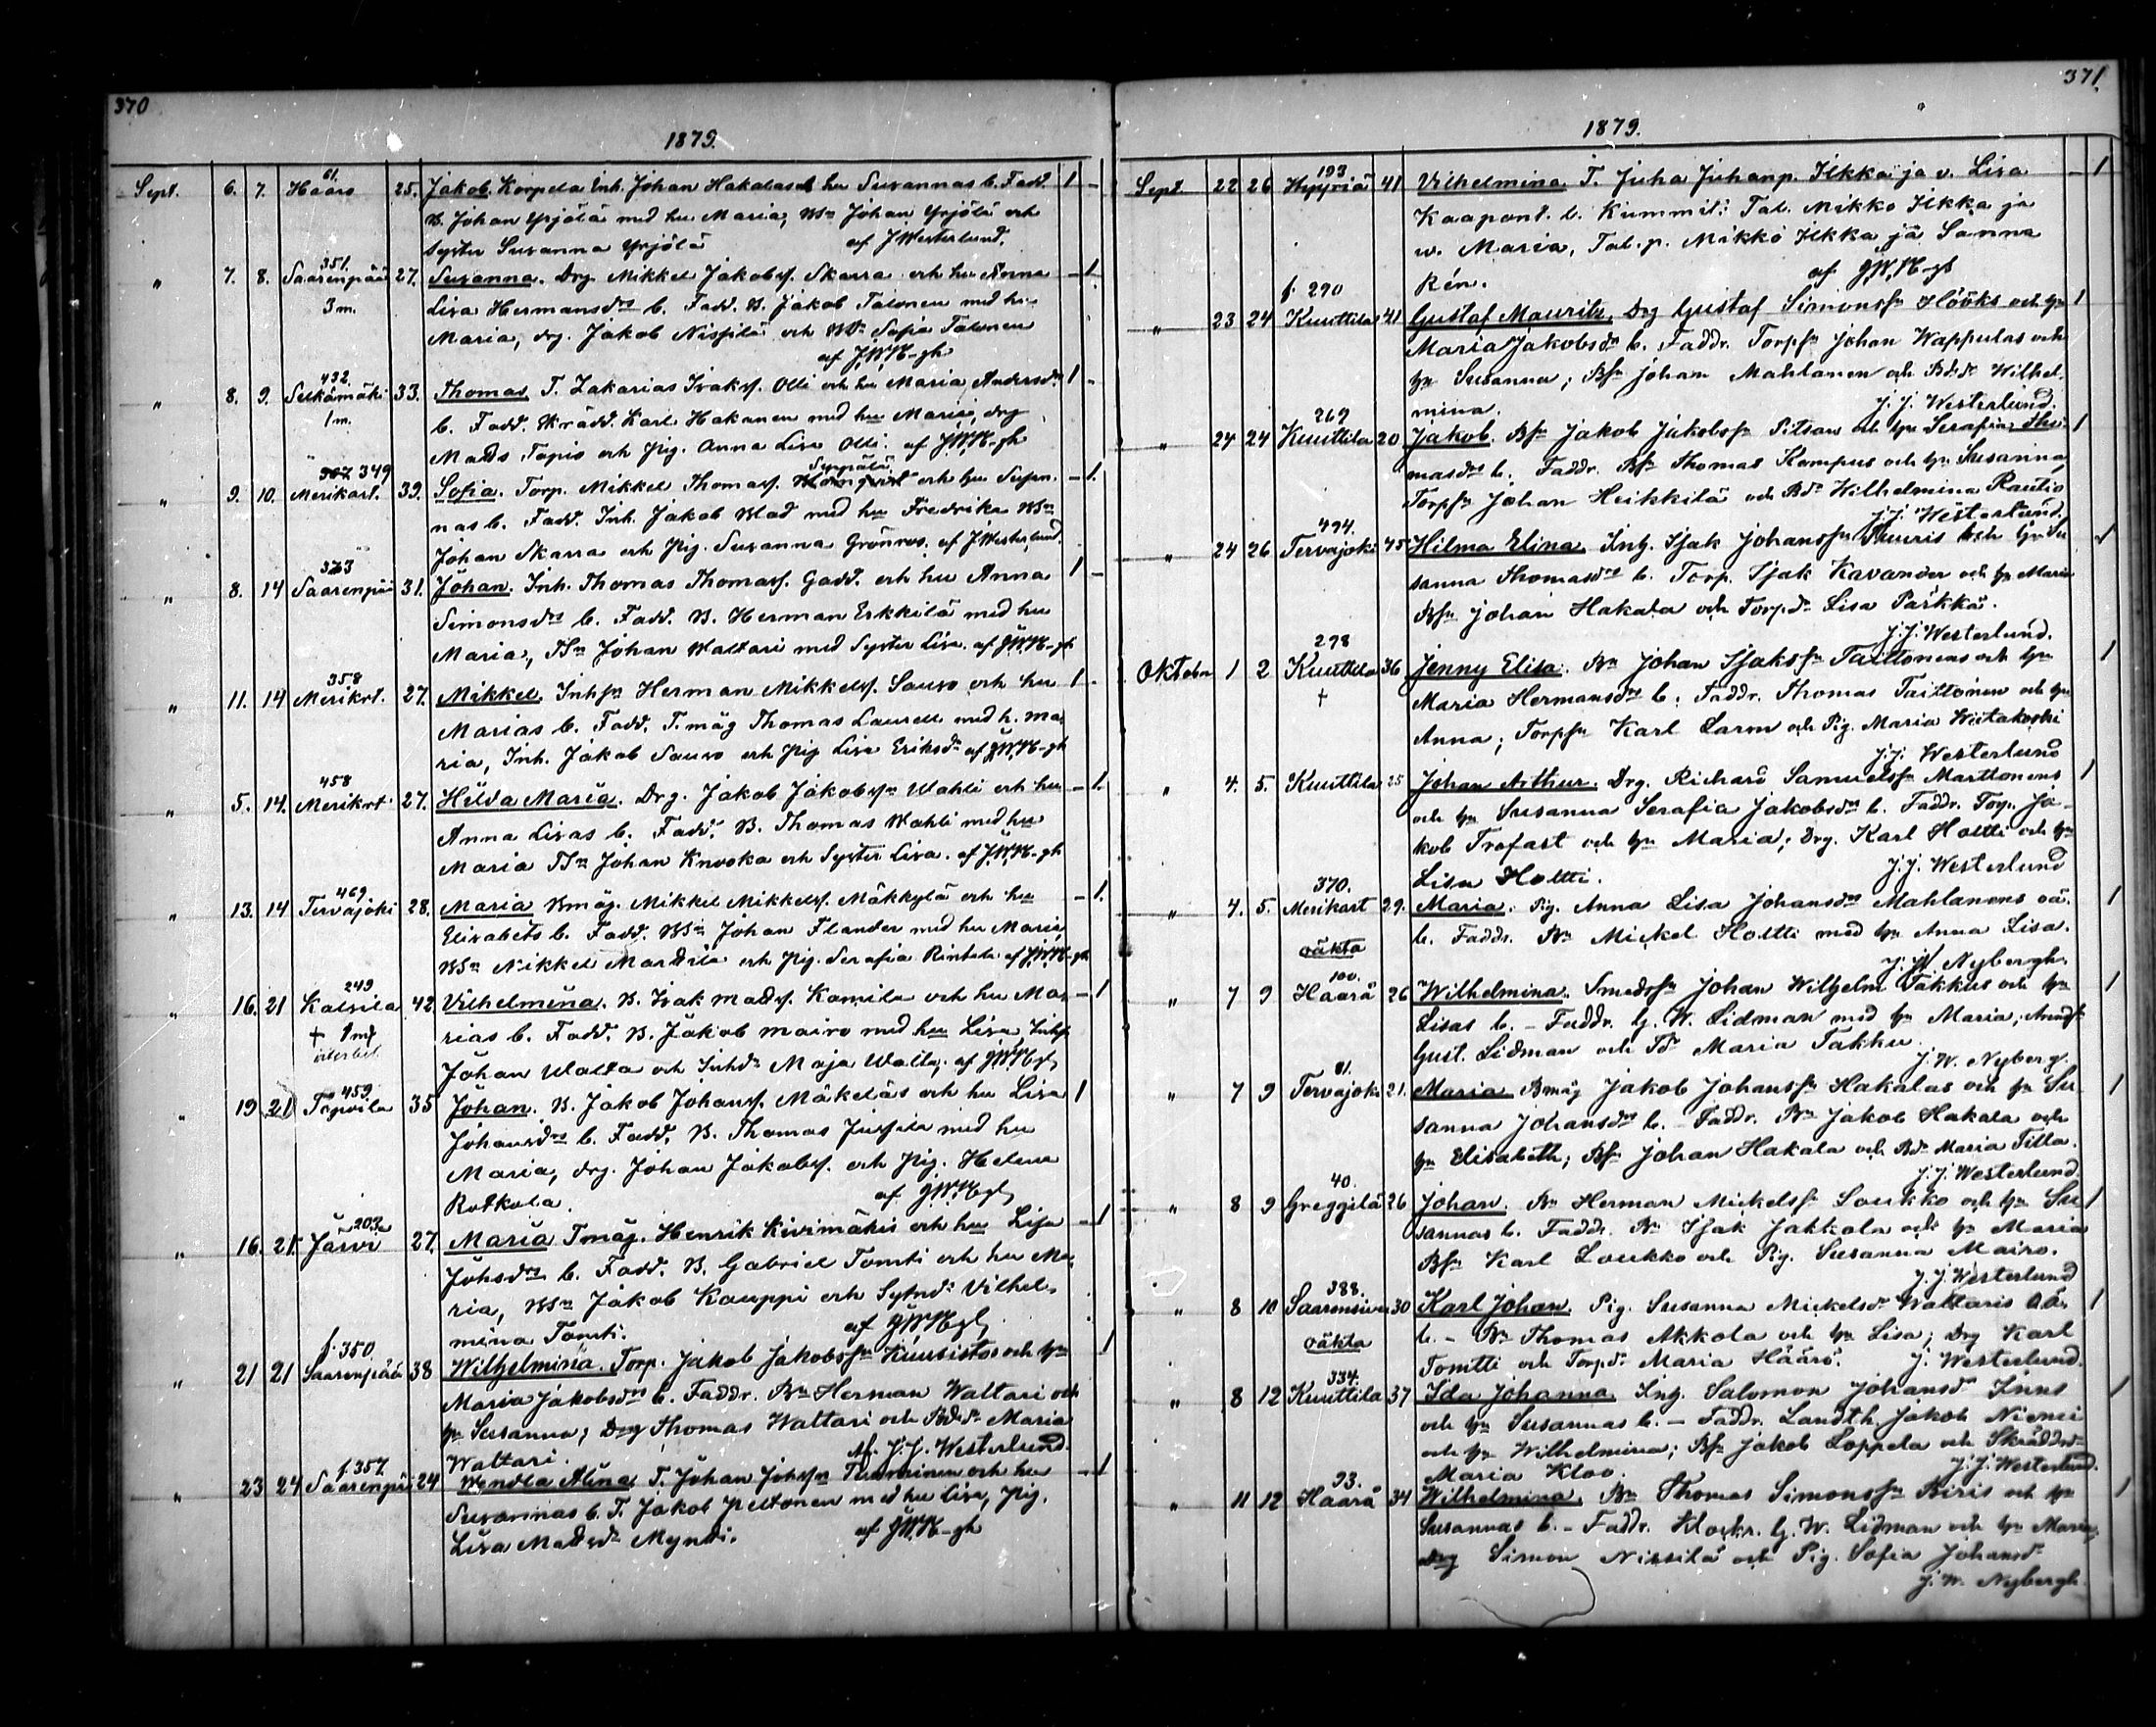 370
1879.
61.
Sept. 6. 7. Haaro 25. Jakob Korpela Inh. Johan Hakalas och hu Susannas b. Fadd. 1 -
B. Johan Yrjölä med hu Maria, Bsn Johan Yrjölä och
Syster Susanna Yrjölä af J Westerlund.
351.
" 7. 8. Saarenpää 27. Susanna. Drg Mikkel Jakobsf. Skarra och hu Anna - 1.
3 m. Lisa Hermansdrs b. Fadd. B. Jakob Talonen med hu
Maria, drg. Jakob Nissilä och Bdr Sofia Talonen
af J.W.N-gh
432.
" 8. 9. Selkämäki 33. Thomas T. Zakarias Isaksf. Olli och hu Maria Andersdrs 1 -
1 m. b. Fadd. Skrädd. Karl Hakanen med hu Maria, drg
Mads Tapio och Pig. Anna Lisa Olli. af J.W.N-gh
367 349 Seppälä
" 9. 10. Merikart. 39. Sofia. Torp. Mikkel Thomasf. och hu Susan- - 1.
nas b. Fadd. Inh. Jakob Blad med hu Fredrika Bsn
Johan Skarra och Pig. Susanna Grönroos. af J Westerlund.
323
" 8. 14 Saarenpää 31. Johan. Inh. Thomas Thomasf. Gadd. och hu Anna 1 -
Simonsdrs b. Fadd. B. Herman Erkkilä med hu
Maria, Bsn Johan Waltari med Syster Lisa. af J.W.N-gh
358
" 11. 14 Merikrt. 27. Mikkel. Inhsn Herman Mikkelsf. Sauso och hu 1 -
Marias b. Fadd. T.måg Thomas Laurell med h. Ma-
ria, Inh. Jakob Sauso och Pig Lisa Eriksdr af J.W.N-gh
458
" 5. 14. Merikrt. 27. Hilda Maria. Drg. Jakob Jakobsfn Wahli och hu - 1.
Anna Lisas b. Fadd. B. Thomas Wahli med hu
Maria Bsn Johan Knooka och Syster Lisa. af J.W.N-gh
469
" 13. 14 Tervajoki 28. Maria Bmåg. Mikkel Mikkelsf. Mäkkylä och hu - 1.
Elisabets b. Fadd. Bsn Johan Flander med hu Maria,
Bsn Nikkel Marttila och Pig. Serafia Rintala af J.W.N-gh
249
" 16. 21 Kalsila 42 Vilhelmina. B. Isak Madsf. Kamila och hu Ma- - 1
† 1 m rias b. Fadd. B. Jakob Mairo med hu Lisa, Inhsn
Johan Walta och Inhdr Maja Walta. af J.W.N-gh
459.
" 19 21 Topvila 35 Johan. B. Jakob Johansf. Mäkeläs och hu Lisa 1
Johansdrs b. Fadd. B. Thomas Jussila med hu
Maria, drg. Johan Jakobsf. och Pig. Helena
Rotkola. af J.W.N-gh
203
" 16. 21. Järvi 27. Maria Tmåg. Henrik Kivimäkis och hu Lisa - 1
Johsdrs b. Fadd. B. Gabriel Tomti och hu Ma-
ria, Bsn Jakob Kauppi och Sytndr Vilhel-
mina Tomti. af J.W.N-gh
f. 350
" 21 21 Saarenpää 38 Wilhelmina. Torp. Jakob Jakobsfn Kuusistos och hu 1
Maria Jakobsdrs b. Faddr. Bn Herman Waltari och
hu Susanna; Drg Thomas Waltari och Bdr Maria
Waltari. Af. J.J. Westerlund.
f. 357.
" 23 24 Saarenpää 24 Wendla Alina T. Johan Johsfn Tuominen och hu - 1
Susannas b. T. Jakob Peltonen med hu Lisa, Pig.
Lisa Madsdr Mynti. af J.W.N-gh
371.
1879.
193
Sept 22 26 Hyyriä 41 Vilhelmina. T. Juha Juhanp. Ilkka ja v. Lisa - 1
Kaapont. l. Kummit: Tal. Mikko Ilkka ja
w. Maria, Tal. p. Mikko Ilkka ja Sanna
Rén. af J.W.N-gh
f. 290
" 23 24 Kuuttila 41 Gustaf Mauritz. Drg Gustaf Simonsfn Hööks och hu 1
Maria Jakobsdrs b. Faddr. Torpsn Johan Wappulas och
hu Susanna; Bsn Johan Mahlanen och Bdr Wilhel-
mina. J.J. Westerlund.
269
" 24 24 Kuuttila 20 Jakob. Bsn Jakob Jakobsfn Pitsars och hu Serafia Tho- 1
masdrs b. Faddr. Bsn Thomas Kempus och hu Susanna
Torpsn Johan Heikkilä och Bdr Wilhelmina Rautio
J.J. Westerlund.
494.
" 24 26 Tervajoki 45 Hilma Elina. Inh. Isak Johansfn Puuris och hu Su- 1
sanna Thomasdrs b. Torp. Isak Kavander och hu Maria
Bsn Johan Hakala och Torpdr Lisa Pärkkä.
J.J. Westerlund.
278
Oktober 1 2 Kuuttila 36 Jenny Elisa. Bn Johan Isaksfn Taittonens och hu 1
† Maria Hermansdrs b. Faddr. Thomas Taittonen och hu
Anna; Torpsn Karl Larm och Pig. Maria Wiitakoski
J.J. Westerlund
" 4. 5. Kuuttila 25 Johan Arthur. Drg. Richard Samuelsfn Marttonens 1
och hu Susanna Serafia Jakobsdrs b. Faddr. Torp. Ja-
kob Trofast och hu Maria; Drg. Karl Holtti och hu
Lisa Holtti. J.J. Westerlund
370.
" 4. 5. Merikart 29. Maria. Pig. Anna Lisa Johansdrs Mahlanens oä. 1
oäkta b. Faddr. Bn Mickel Holtti med hu Anna Lisa.
J.W Nybergh.
100.
" 7 9 Haarä 26 Wilhelmina. Smedssn Johan Wilhelm Takkus och hu 1
Lisas b. - Faddr. G. W. Lidman med hu Maria;
Gust. Lidman och Td Maria Takku.
J.W. Nyberg.
81.
" 7 9 Tervajoki 21. Maria Bmåg Jakob Johansfn Hakalas och hu Su- 1
sanna Johansdrs b. - Faddr. Bn Jakob Hakala och
hu Elisabeth; Bsn Johan Hakala och Bdr Maria Tilla.
J.J. Westerlund
40.
" 8 9 Greggilä 26 Johan. Bn Herman Mickelsfn Loukko och hu Su- 1
sannas b. Faddr. Bn Isak Jakkola och hu Maria
Bsn Karl Loukko och Pig. Susanna Mairo.
J.J. Westerlund
388.
" 8 10 30 Karl Johan. Pig. Susanna Mickelsdr Waltaris oä. 1
oäkta b. - Bn Thomas Akkola och hu Lisa; Drg Karl
Tomtti och Torpdr Maria Häärö. J. Westerlund.
334.
" 8 12 Kuuttila 37 Ida Johanna. Inh. Salomon Johansf Inns 1
och hu Susannas b. - Faddr. Landth. Jakob Niemi
och hu Wilhelmina; Bsn Jakob Loppela och Skräddrdr
Maria Kloo. J.J. Westerlund.
93.
" 11 12 Haarä 34 Wilhelmina. Bn Thomas Simonsfn Biris och hu 1
Susannas b. - Faddr. Klockr. G. W. Lidman och hu Maria;
Drg Simon Nissilä och Pig. Sofia Johansdr
J.W. Nybergh